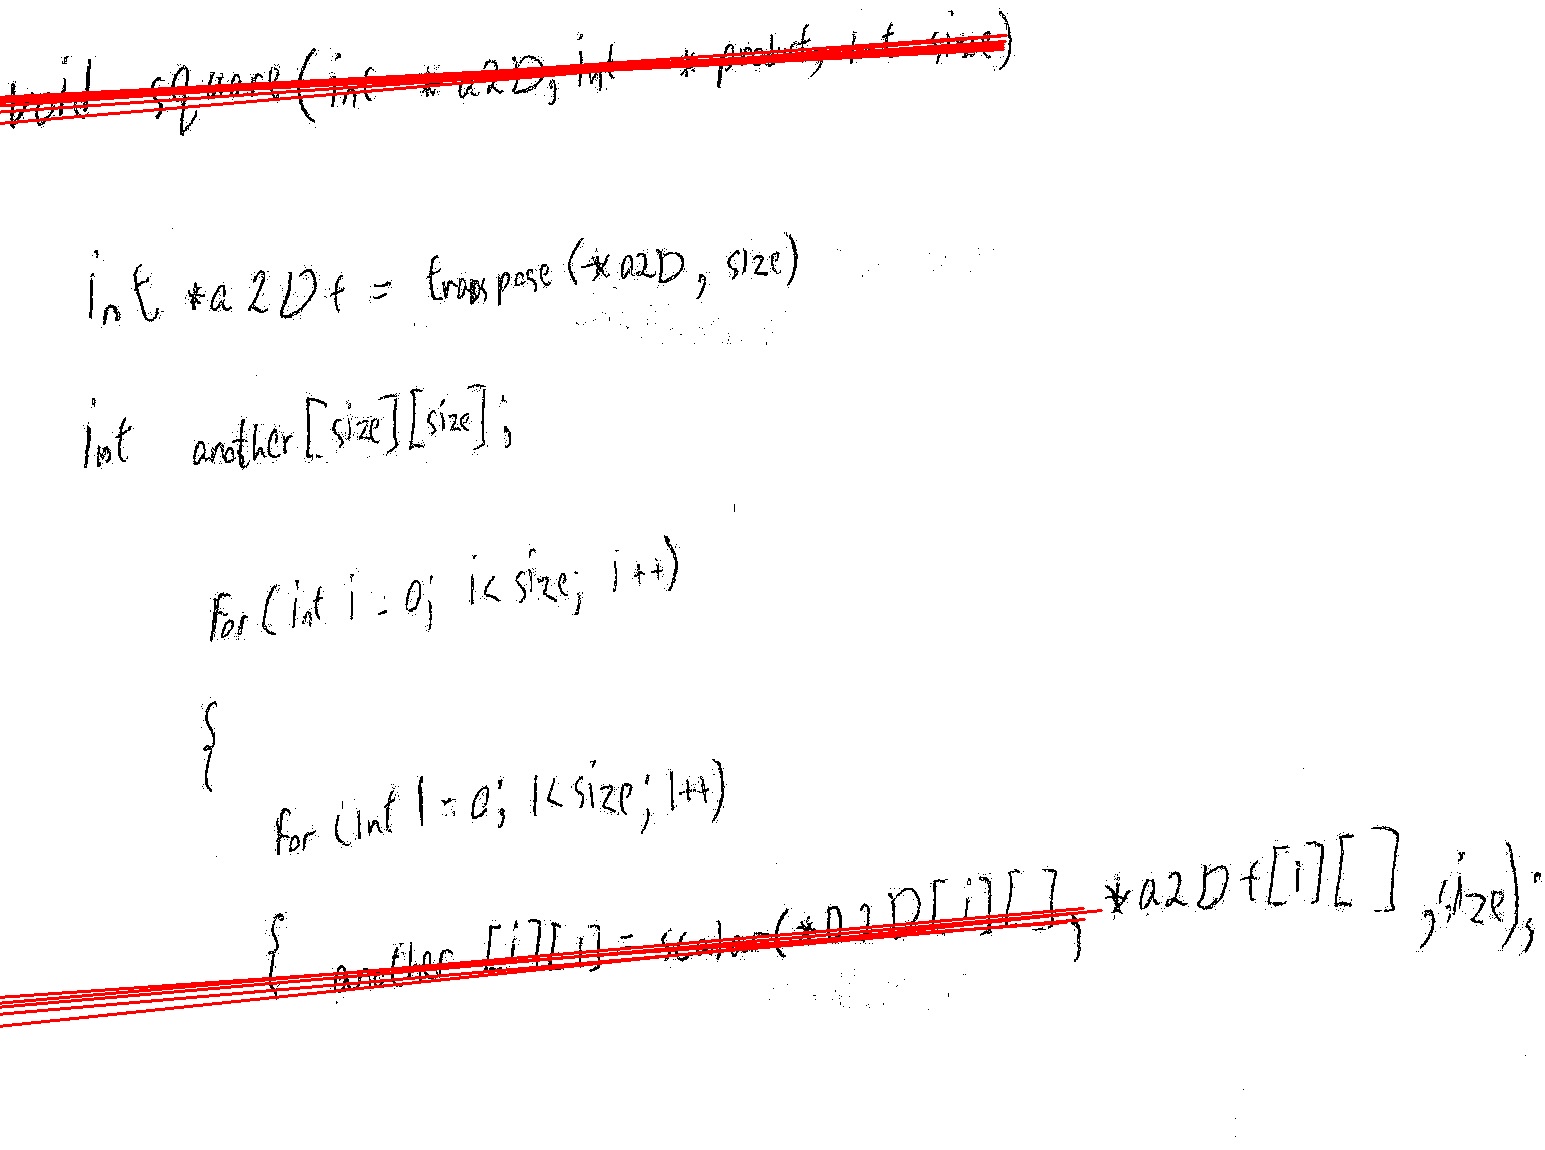 void square(int *a2D, int *product, int size)
int *a2Dt = transpose(*a2D, size)
int another[size][size];
For(int i = 0; i< size; i++)
{
for (int l = 0; l< size; l++)
{ another [i][l] = scalar(*a2D[i][], *a2Dt[i][] ,size);